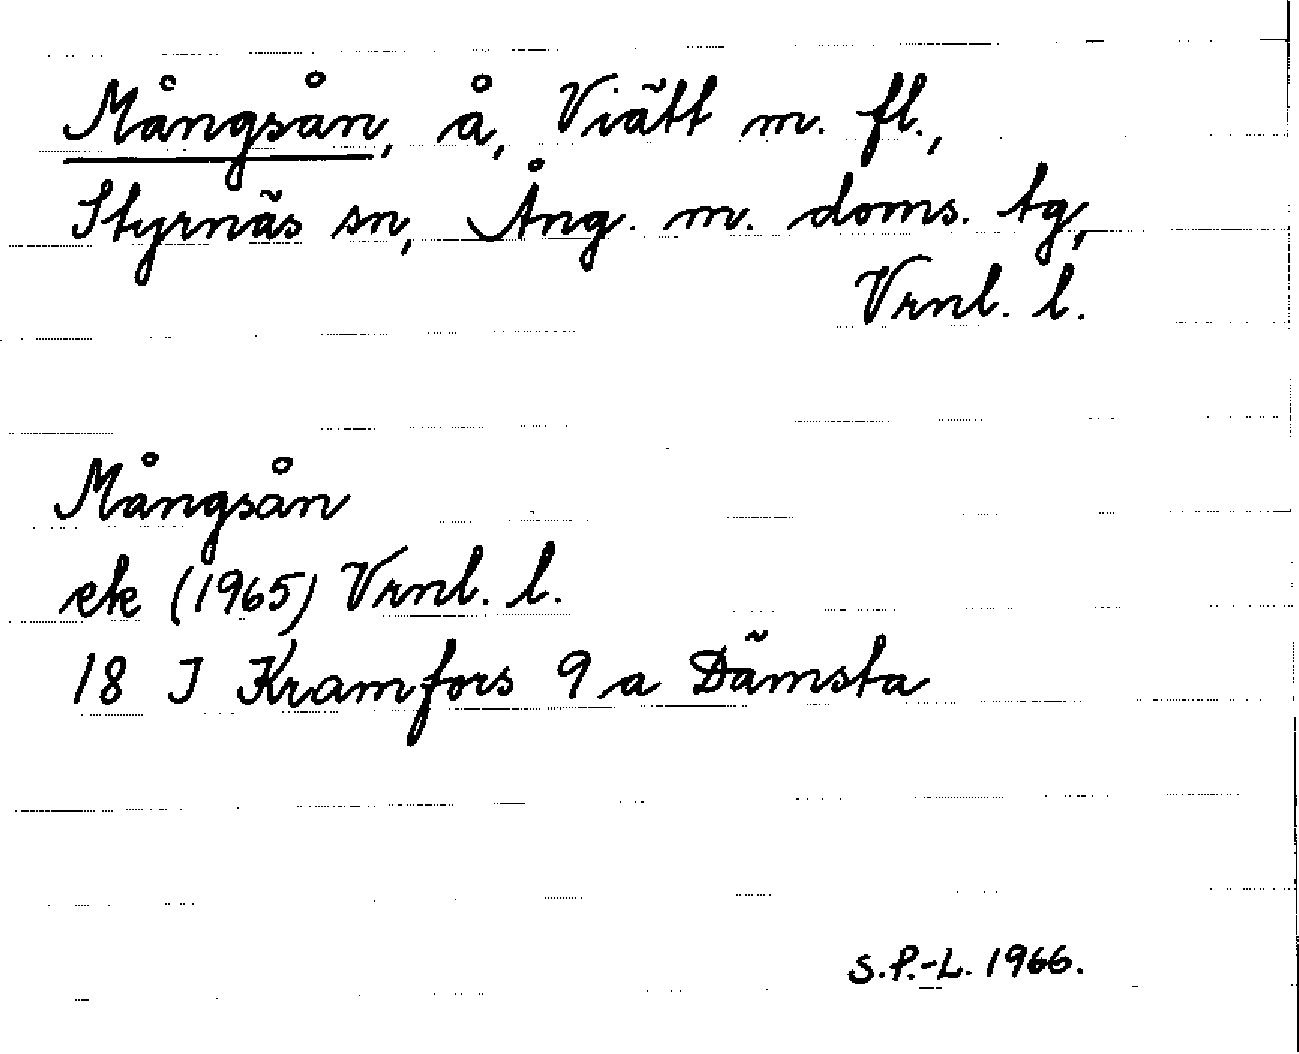 Mångsån, å, Viätt m. fl.,
Styrnäs sn, Ång. m. doms. tg,
Vrnl. l.
Mångsån
ek (1965) Vrnl. l.
18 J Kramfors 9 a Dämsta
S.P.-L. 1966.